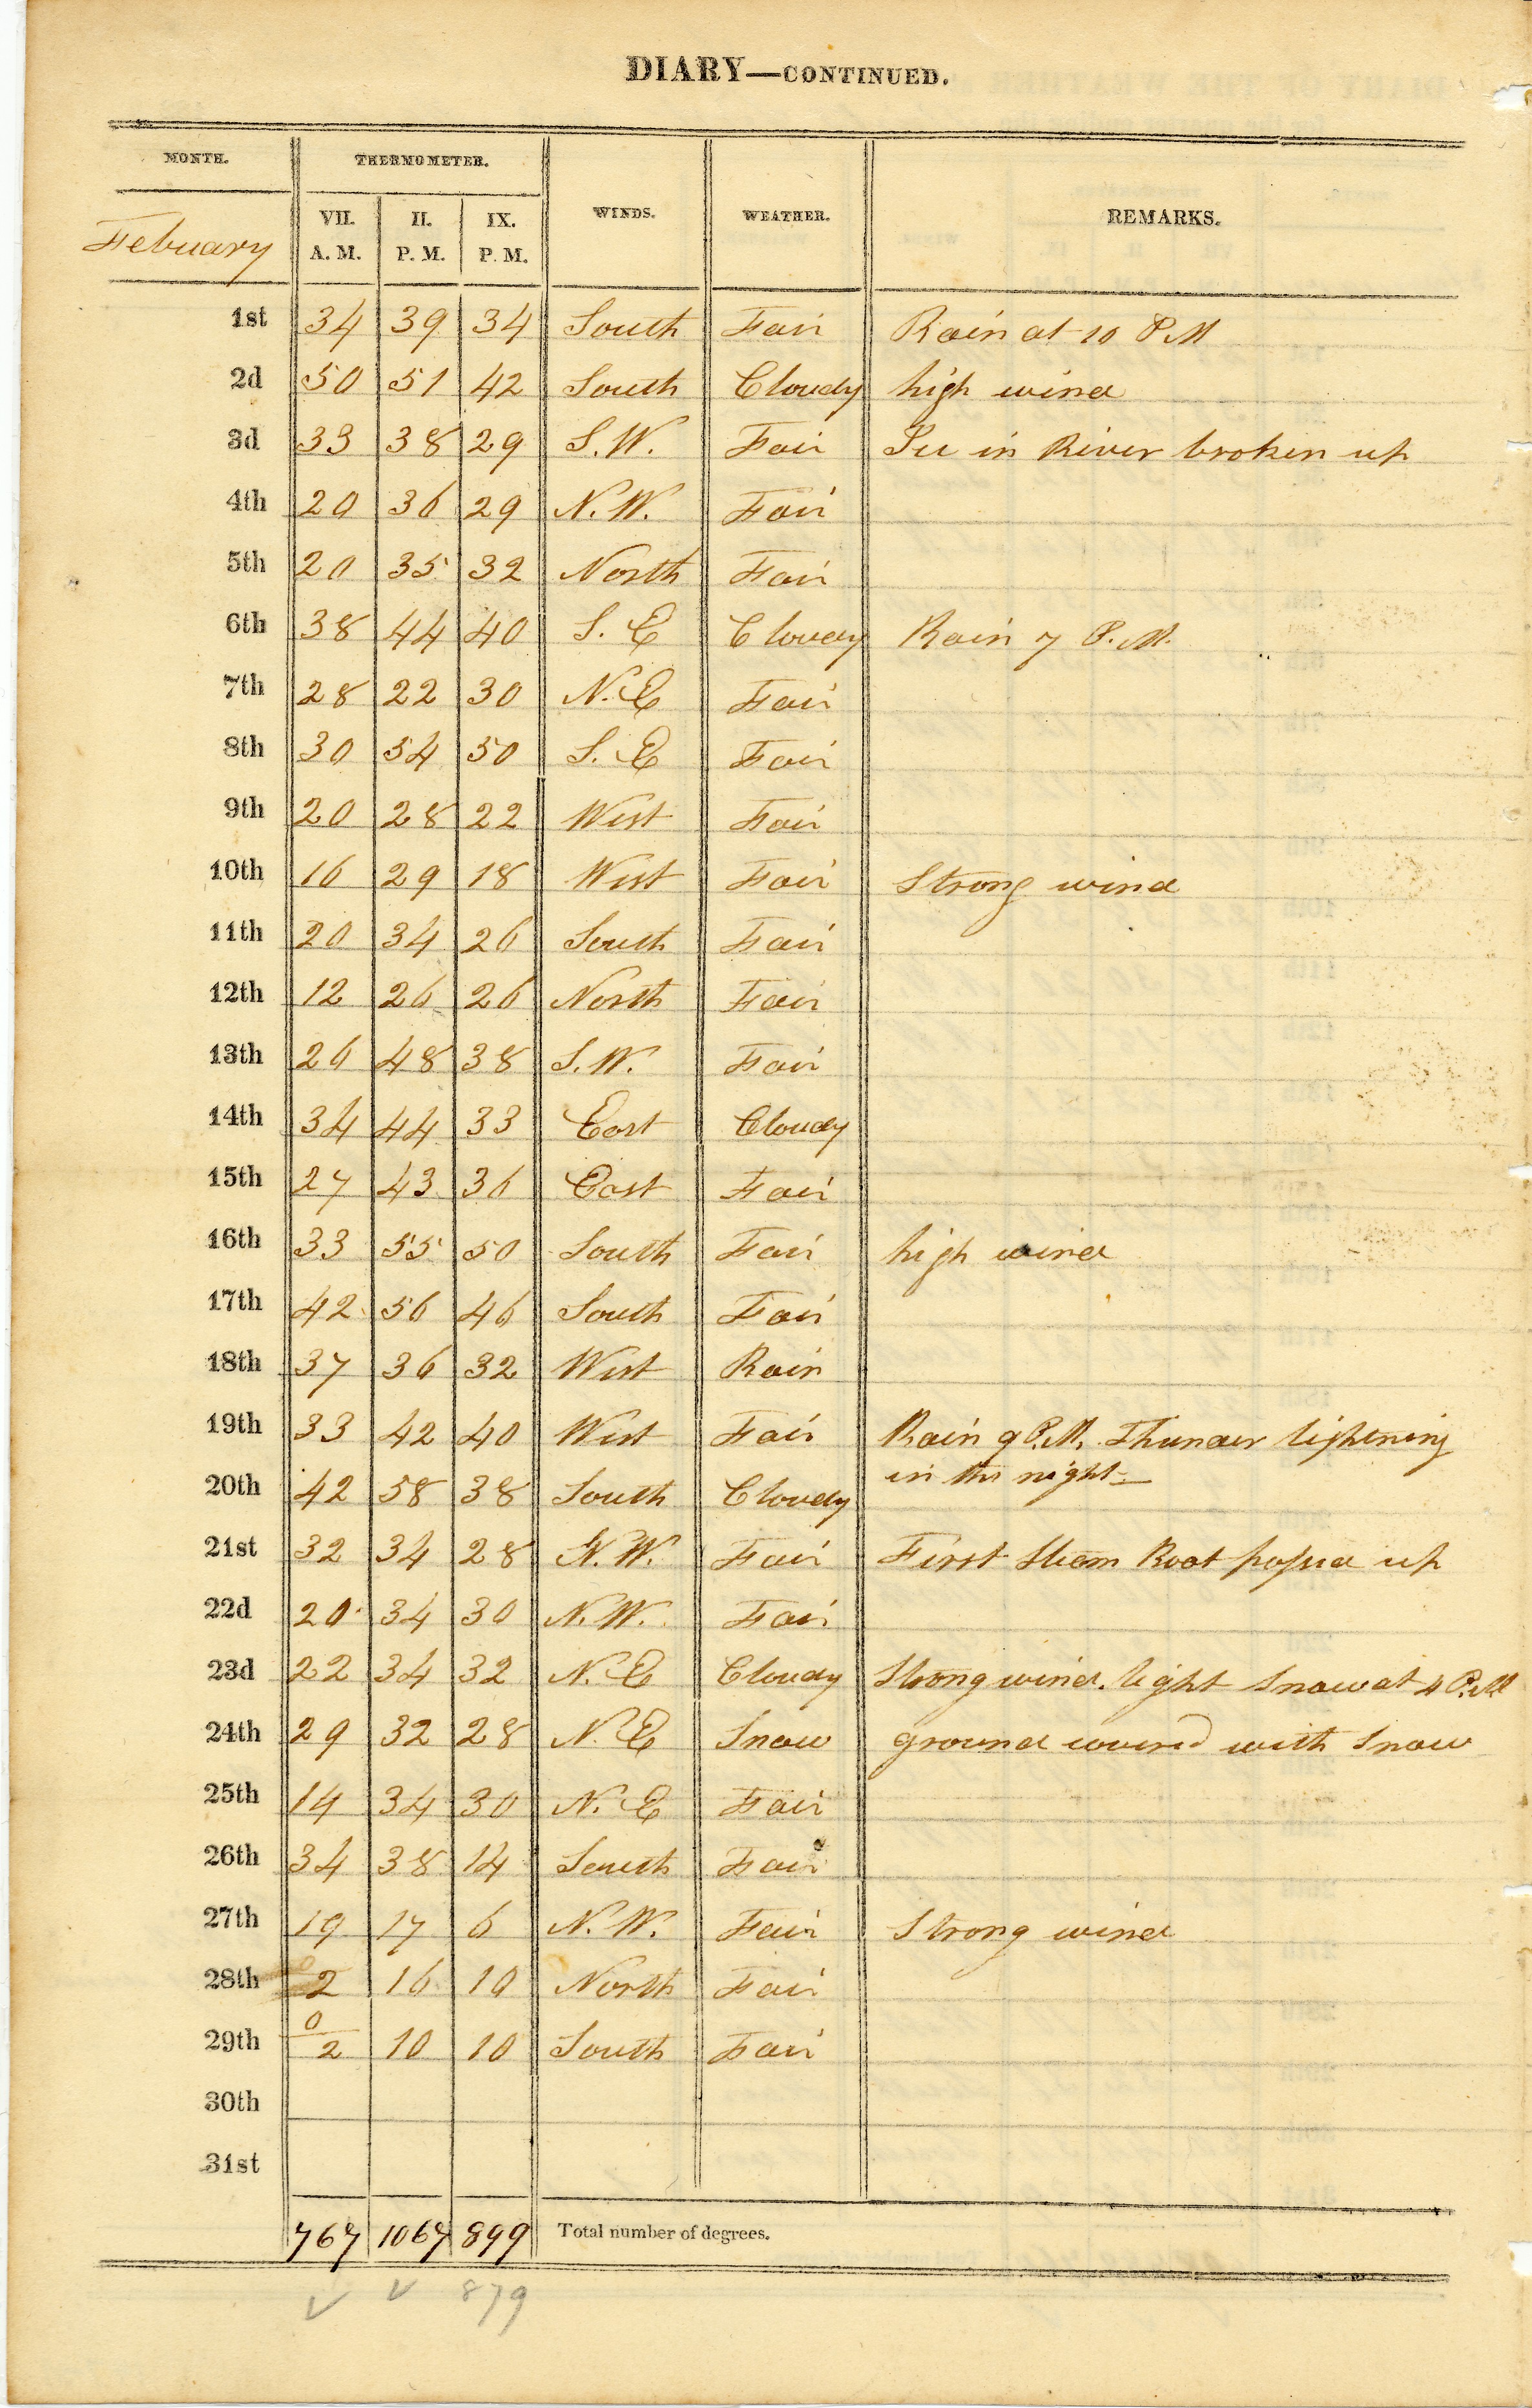 DIARY—CONTINUED.
MONTH. THERMOMETER. WINDS. WEATHER. REMARKS.
Febuary VII. A. M. II. P. M. IX. P. M.
1st 34 39 34 South Fair Rain at 10 P.M
2d 50 51 42 South Cloudy high wind
3d 33 38 29 S.W. Fair Ice in River broken up
4th 20 36 29 N.W. Fair
5th 20 35 32 North Fair
6th 38 44 40 S. E Cloudy Rain 7 P.M.
7th 28 22 30 N.E Fair
8th 30 54 50 S. E Fair
9th 20 28 22 West Fair
10th 16 29 18 West Fair Strong wind
11th 20 34 26 South Fair
12th 12 26 26 North Fair
13th 26 48 38 S.W. Fair
14th 34 44 33 East Cloudy
15th 27 43 36 East Fair
16th 33 55 50 South Fair high wind
17th 42 56 46 South Fair
18th 37 36 32 West Rain
19th 33 42 40 West Fair Rain 9 P.M. Thunder lightening
in the night —
20th 42 58 38 South Cloudy
21st 32 34 28 N.W. Fair First Steam Boat passed up
22d 20 34 30 N.W. Fair
23d 22 34 32 N. E Cloudy Strong wind. light Snow at 4 P.M
24th 29 32 28 N. E Snow ground covered with Snow
25th 14 34 30 N. E Fair
26th 34 38 14 South Fair
27th 19 17 6 N.W. Fair Strong wind
28th 2 16 10 North Fair
29th 0/2 10 10 South Fair
30th
31st
767 1067 899 Total number of degrees.
879